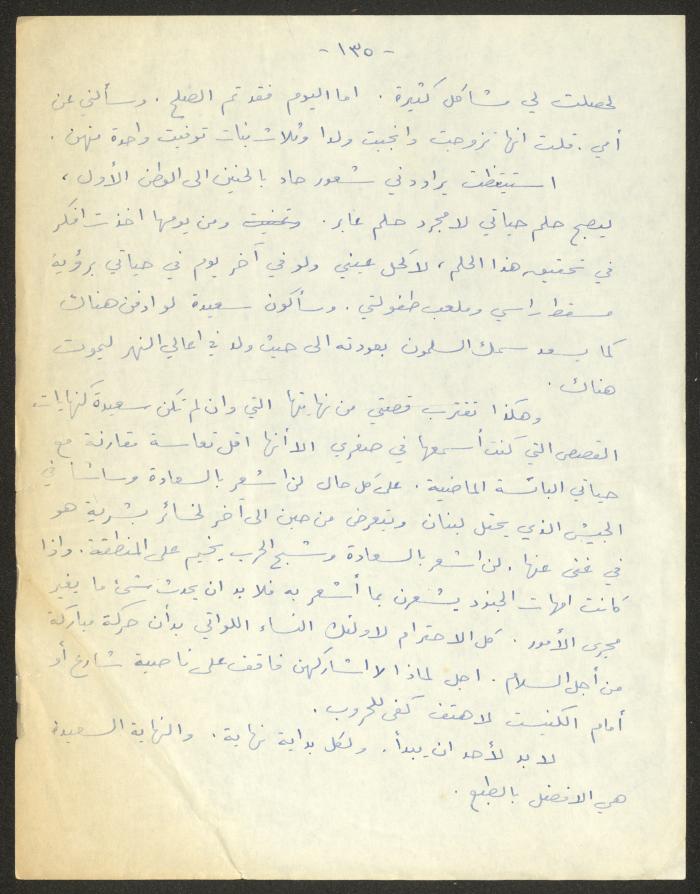 - ١٣٥ -
لحصلت لي مشاكل كثيرة . اما اليوم فقد تم الصلح . وسألني عن
أمي . قلت انها تزوجت وانجبت ولدا وثلاث بنات توفيت واحدة منهن .
استيقظت يراودني شعور حاد بالحنين الى الوطن الأول ،
ليصبح حلم حياتي لا مجرد حلم عابر . وتمنيت ومن يومها اخذت افكر
في تحقيق هذا الحلم ، لاكحل عيني ولو في آخر يوم في حياتي برؤية
مسقط راسي وملعب طفولتي . وسأكون سعيدة لو ادفن هناك
كما يسعد سمك السلمون بعودته الى حيث ولد في اعالي النهر ليموت
هناك .
وهكذا تقترب قصتي من نهايتها التي وان لم تكن سعيدة كنهايات
القصص التي كنت أسمعها في صغري الا أنها اقل تعاسة مقارنة مع
حياتي البائسة الماضية . على كل حال لن اشعر بالسعادة وساشا في
الجيش الذي يحتل لبنان ويتعرض من حين الى آخر لخسائر بشرية هو
في غنى عنها . لن اشعر بالسعادة وشبح الحرب يخيم على المنطقة . واذا
كانت امهات الجنود يشعرن بما أشعر به فلا بد ان يحدث شئ ما يغير
مجرى الأمور . كل الاحترام لاولئك النساء اللواتي بدأن حركة مباركة
من أجل السلام . اجل لماذا لا اشاركهن فاقف على ناصية شارع أو
أمام الكنيست لاهتف كفى للحروب .
لا بد لأحد ان يبدأ . ولكل بداية نهاية . والنهاية السعيدة
هي الافضل بالطبع .